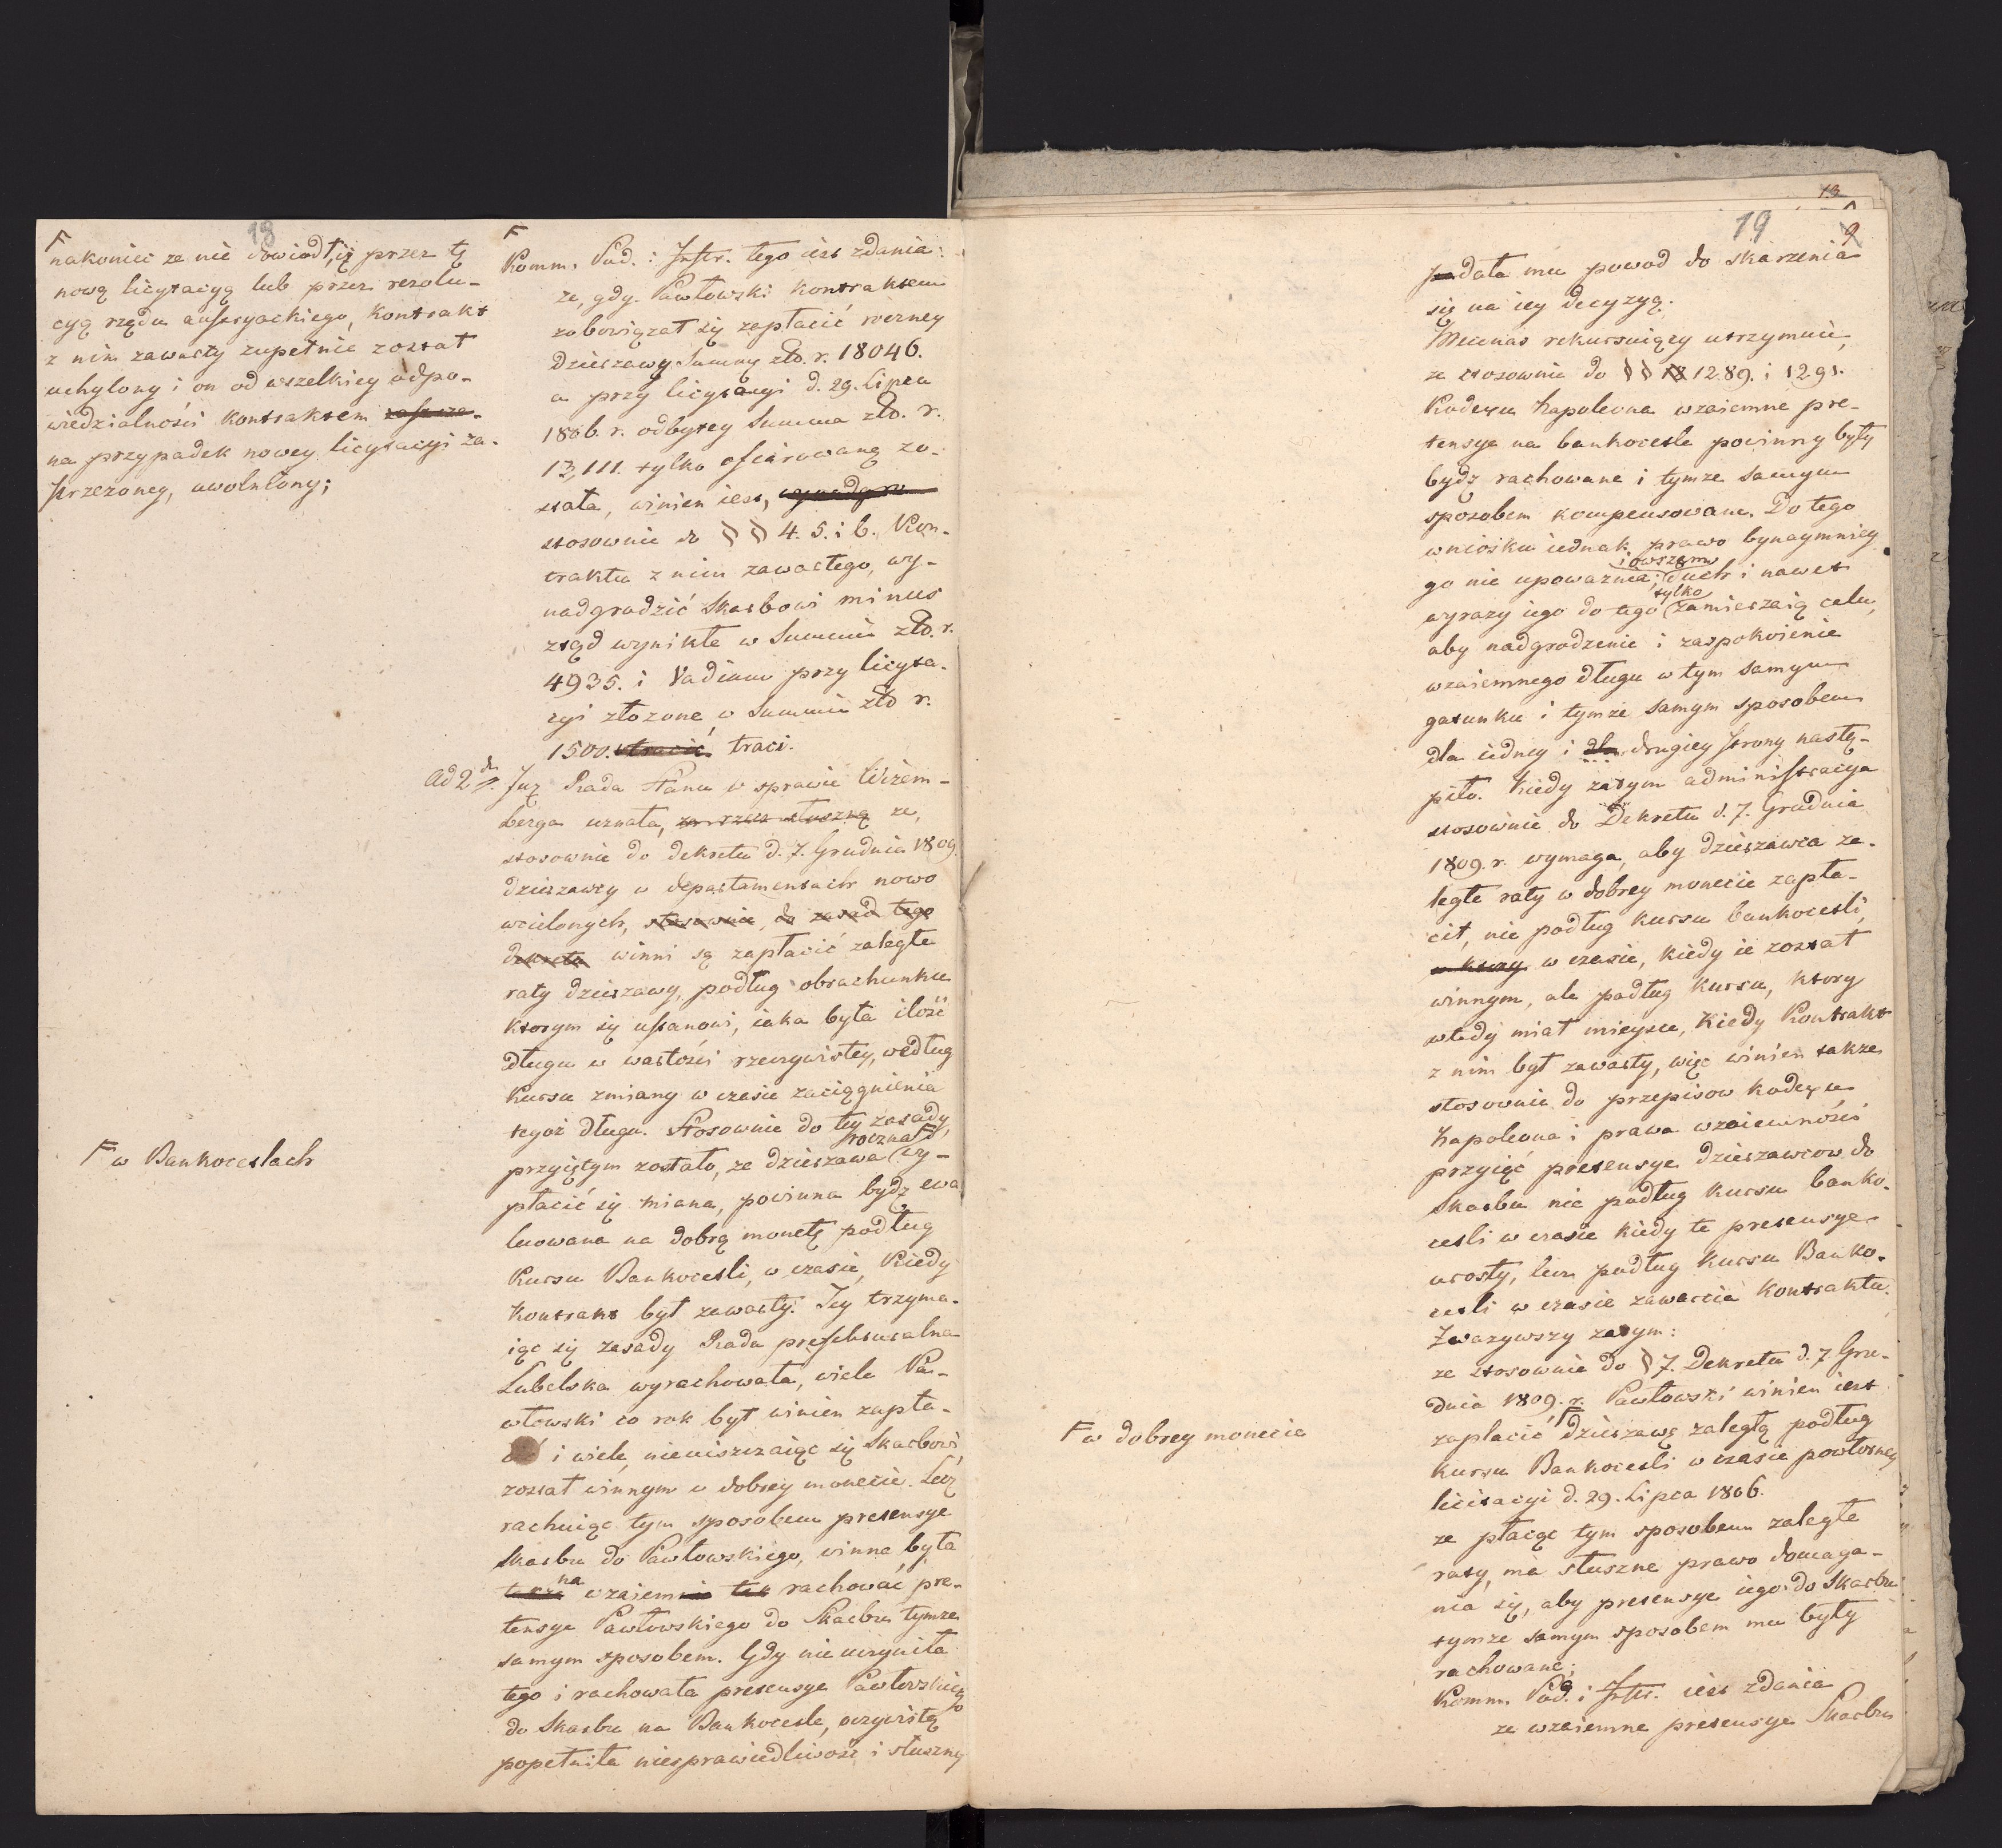 18
F nakoniec ze nie dowiodł, iż przez tę
nową licytacyą lub przez rezolu-
cyą rządu austryackiego, kontrakt
z nim zawarty zupełnie został
uchylony i on od wszelkiey odpo-
wiedzialności kontraktem
na przypadek nowey licytacyi za-
strzezoney, uwolniony;
F w Bankocetlach
F
Komm. Pod. i Instr. tego iest zdania:
ze, gdy Pawłowski kontraktem
zobowiązał się zapłacić roczney
dzierzawy Summę złb. r. 18046.
a przy licytacyi d. 29. Lipca
1806. r. odbytey Summa złb. r.
13,111. tylko ofiarowaną zo-
stała, winien iest, wynadgro
stosownie do §§ 4. 5. i 6. Kon-
traktu z nim zawartego, wy-
nadgrodzić Skarbowi minus
ztąd wynikłe w Summie złb. r.
4935. i Vadium przy licyta-
cyi złozone w Summie złb r.
1500. utracić traci.
Ad 2dm. Juz Rada Stanu w sprawie Wizem-
berga uznała, za rzecz słuszną ze,
stosownie do dekretu d. 7. Grudnia 1809.
dzierzawcy w departamentach nowo
wcielonych, stosownie, do zasad tego
dekretu winni są zapłacić zaległe
raty dzierzawy, podług obrachunku
ktorym się ustanowi, iaka była ilość
długu w wartości rzeczywistey, według
kursu zmiany w czasie zaciągnienia
tegoż długu. Stosownie do tey zasady,
przyiętym zostało, ze dzierzawa roczna F wy-
płacić się miana, powinna bydź ewa
luowana na dobrą monetę podług
kursu Bankocetli, w czasie, kiedy
kontrakt był zawarty. Tey trzyma-
iąc się zasady Rada prefekturalna
Lubelska wyrachowała, wiele Pa-
włowski co rok był winien zapła-
cić i wiele, nieuiszczaiąc się Skarbowi,
został winnym w dobrey monecie. Lecz
rachuiąc tym sposobem pretensye
Skarbu do Pawłowskiego, winna była
także na wzaiem nie tak rachować pre-
tensye Pawłowskiego do Skarbu tymze
samym sposobem. Gdy nie uczyniła
tego i rachowała pretensye Pawłowskiego
do Skarbu na Bankocetle, oczywistą
popełniła niesprawiedliwość i słuszny
13
19
9
podała mu powod do skarzenia
się na iey decyzyą.
Mecenas rekursuiący utrzymuie,
ze stosownie do §§ 1289. i 1291.
Kodexu Napoleona wzaiemne pre-
tensye na bankocetle powinny były
bydź rachowane i tymze samym
sposobem kompensowane. Do tego
wniosku iednak prawo bynaymniey
go nie upowaznia; i owszem duch i nawet
wyrazy iego do tego tylko zamierzaią celu,
aby nadgrodzenie i zaspokoienie
wzaiemnego długu w tym samym
gatunku i tymze samym sposobem
dla iedney i dla drugiey strony nastą-
piło. Kiedy zatym administracya
stosownie do Dekretu d. 7. Grudnia
1809. r. wymaga, aby dzierzawca za-
ległe raty w dobrey monecie zapła-
cił, nie podług kursu bankocetli,
w ktory w czasie, kiedy ie został
winnym, ale podług kursu, ktory
wtedy miał mieysce, kiedy Kontrakt
z nim był zawarty, więc winien takze
stosownie do przepisow kodexu
Napoleona i prawa wzaiemności
przyiąć pretensye dzierzawcow do
Skarbu nie podług kursu banko-
cetli w czasie kiedy te pretensye
urosły, lecz podług kursu Banko-
cetli w czasie zawarcia Kontraktu.
Zwazywszy zatym:
ze stosownie do § 7. Dekretu d. 7 Gru-
dnia 1809. r. Pawłowski winien iest
zapłacić F dzierzawę zaległą podług
kursu Bankocetli w czasie powtorney
licitacyi d. 29. Lipca 1806.
F w dobrey monecie
ze płacąc tym sposobem zaległe
raty, ma słuszne prawo domaga-
nia się, aby pretensye iego do Skarbu
tymze samym sposobem mu były
rachowane;
Komm. Pod. i Instr. iest zdania
ze wzaiemne pretensye Skarbu